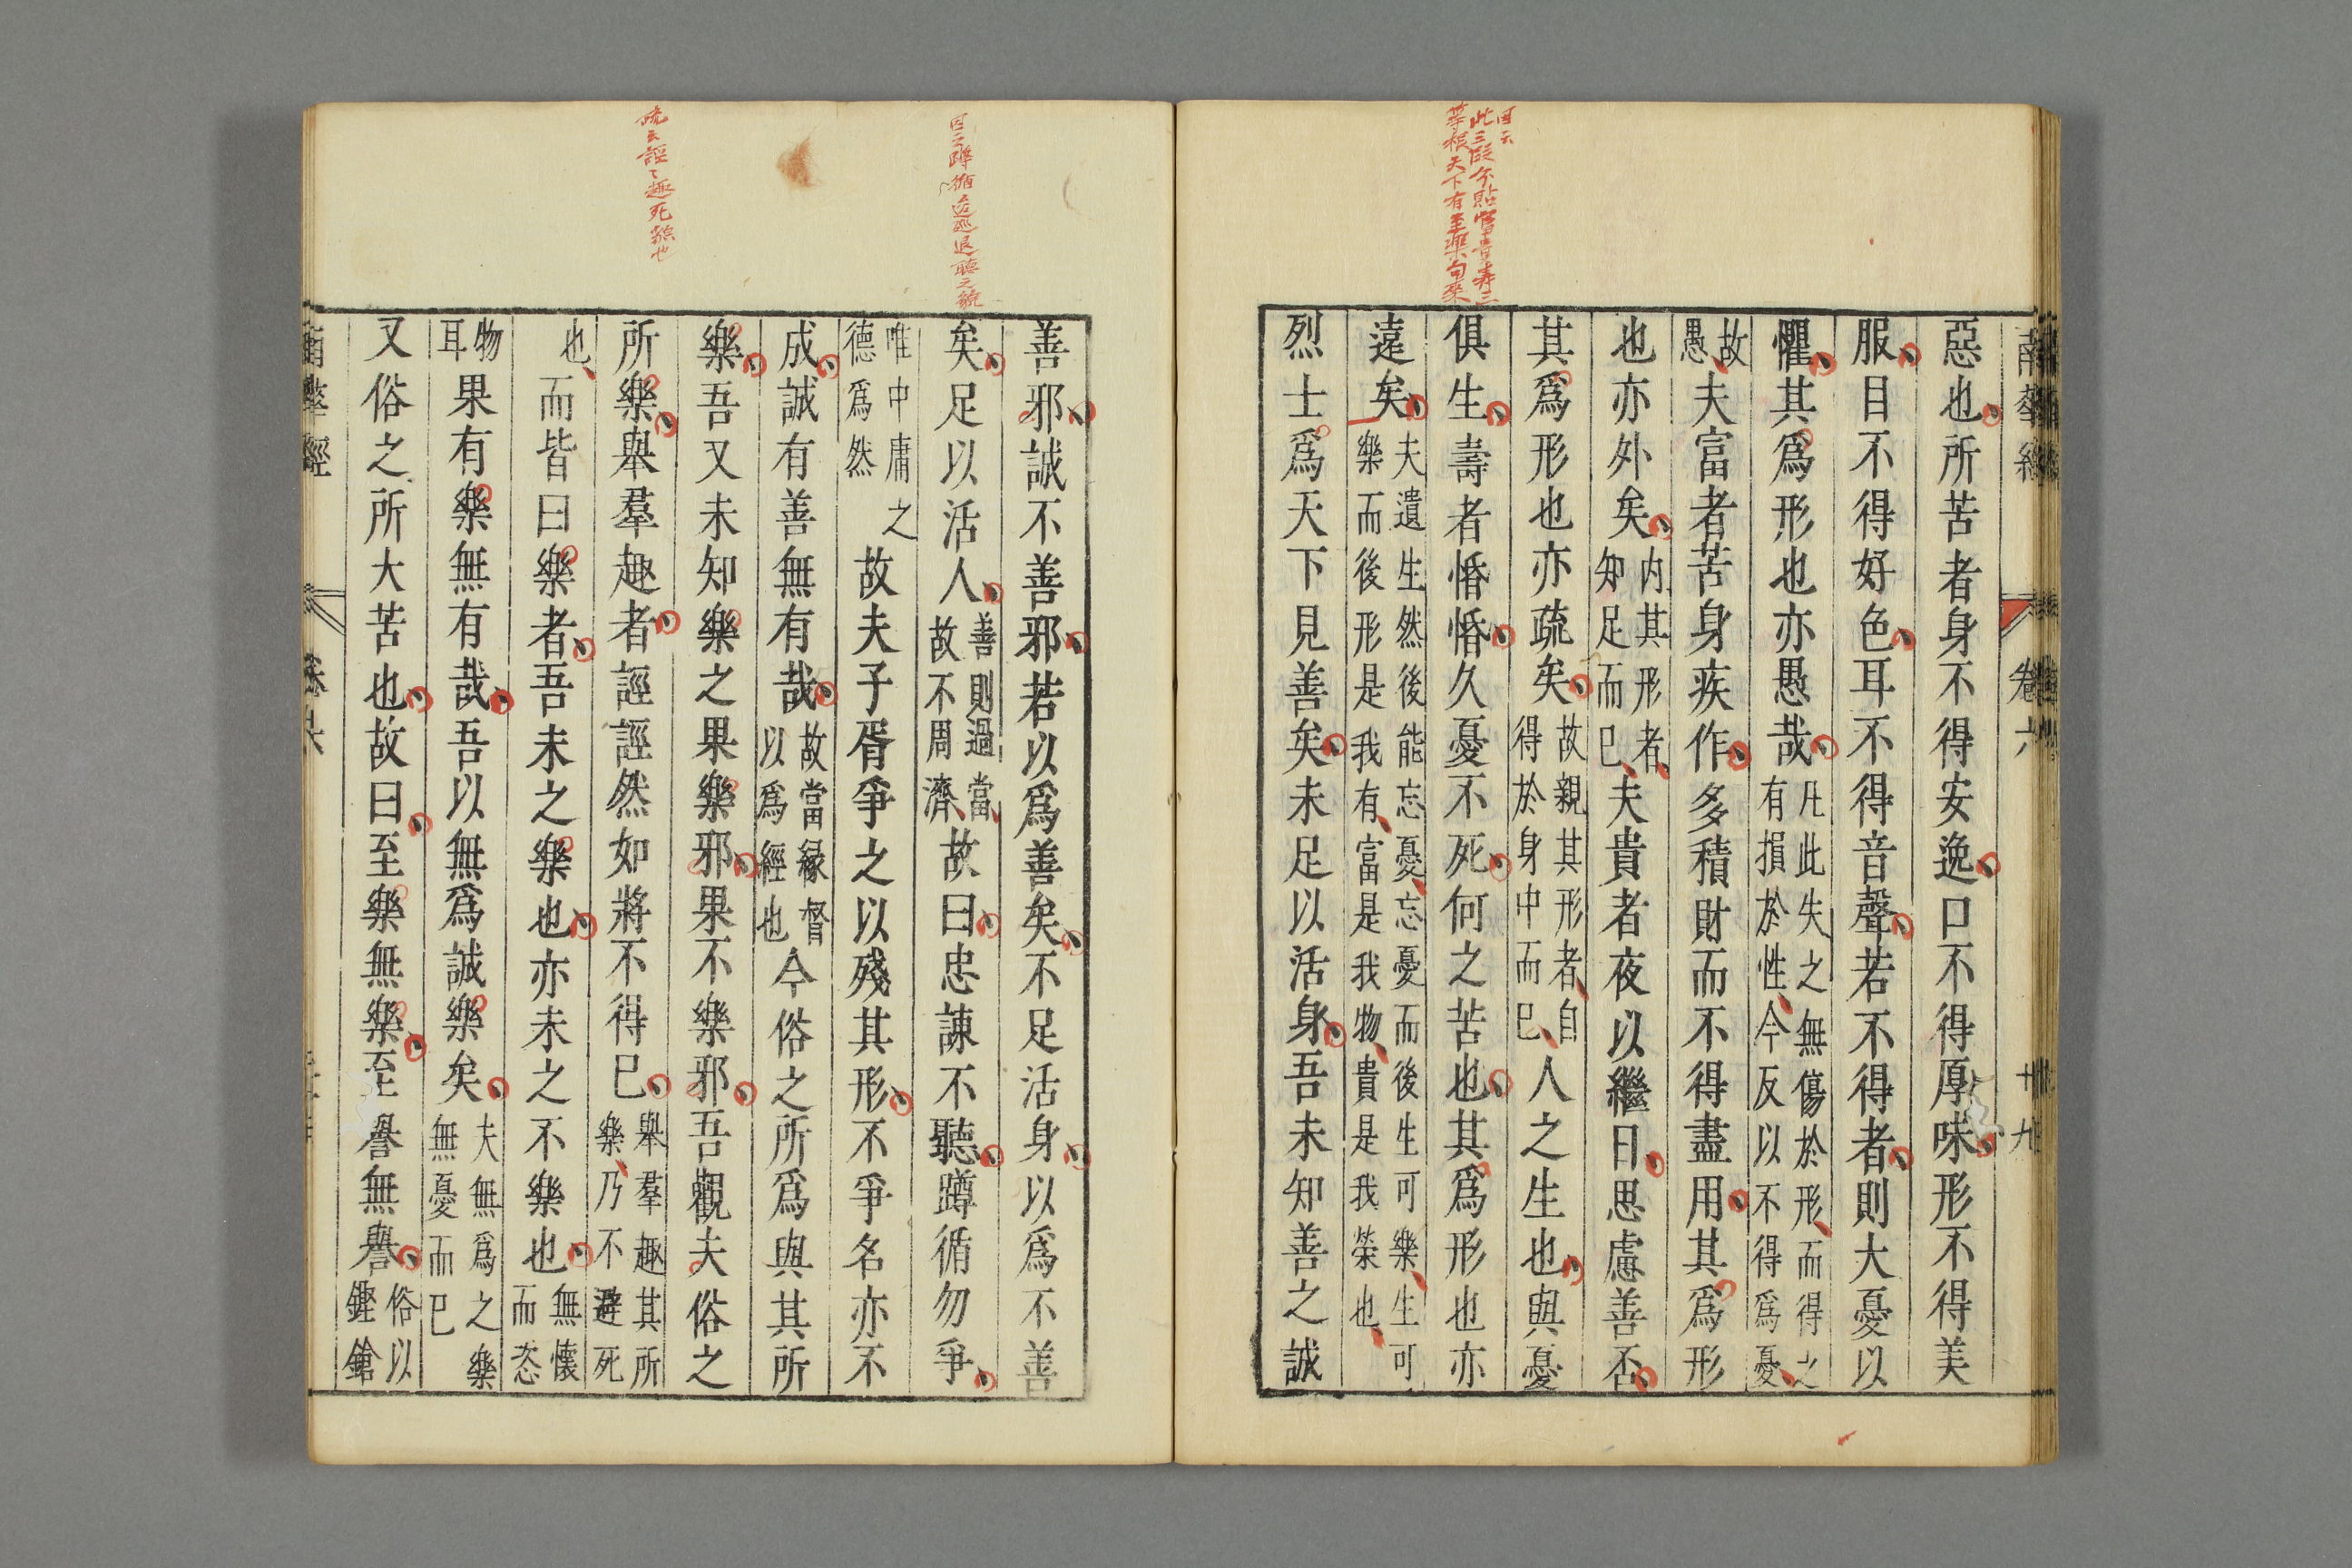 因云
此三段今貼富貴壽三
等根天下有至樂句來
南華經 卷六 十九
惡也所苦者身不得安逸口不得厚味形不得美
服目不得好色耳不得音聲若不得者則大憂以
懼其爲形也亦愚哉凡此失之無傷於形而得之
有損於性今反以不得爲憂
故
愚夫富者苦身疾作多積財而不得盡用其爲形
也亦外矣內其形者
知足而已夫貴者夜以繼日思慮善否
其爲形也亦疏矣故親其形者自
得於身中而已人之生也與憂
俱生壽者惛惛久憂不死何之苦也其爲形也亦
遠矣夫遺生然後能忘憂忘憂而後生可樂生可
樂而後形是我有富是我物貴是我榮也
烈士爲天下見善矣未足以活身吾未知善之誠
因云蹲循逡巡退聽之貌
疏云誙々趣死貌也
善邪誠不善邪若以爲善矣不足活身以爲不善
矣足以活人善則過當
故不周濟故曰忠諫不聽蹲循勿爭
唯中庸之
德爲然故夫子胥爭之以殘其形不爭名亦不
成誠有善無有哉故當緣督
以爲經也今俗之所爲與其所
樂吾又未知樂之果樂邪果不樂邪吾觀夫俗之
所樂舉羣趣者誙誙然如將不得已舉羣趣其所
樂乃不避死
也而皆曰樂者吾未之樂也亦未之不樂也無懷
而恣
物
耳果有樂無有哉吾以無爲誠樂矣夫無爲之樂
無憂而已
又俗之所大苦也故曰至樂無樂至譽無譽俗以
鏗鎗
南華經 卷六